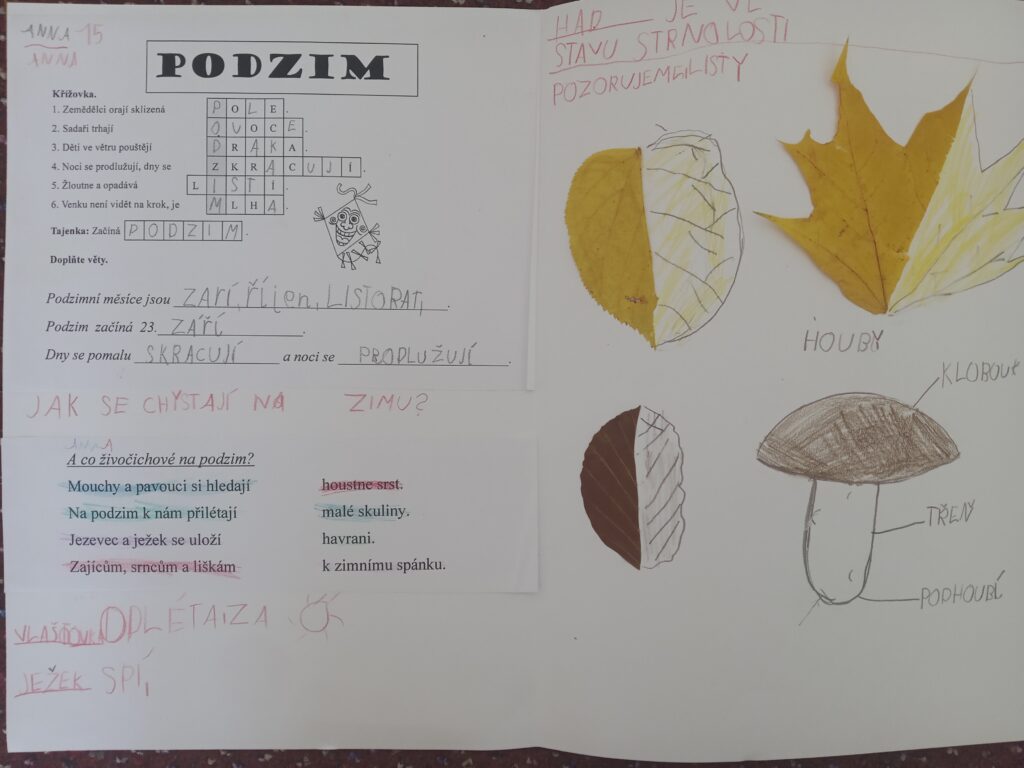 ANNA 15
ANNA
PODZIM
Křížovka.
1. Zemědělci orají sklizená POLE.
2. Sadaři trhají OVOCE.
3. Děti ve větru pouštějí DRAKA.
4. Noci se prodlužují, dny se ZKRACUJÍ.
5. Žloutne a opadává LISTÍ.
6. Venku není vidět na krok, je MLHA.
Tajenka: Začíná PODZIM.
Doplňte věty.
Podzimní měsíce jsou ZAŘÍ, říjen, LISTOPAT,.
Podzim začíná 23. ZÁŘÍ.
Dny se pomalu SKRACUJÍ a noci se PRODLUŽUJÍ.
JAK SE CHYSTAJÍ NA ZIMU?
ANNA
A co živočichové na podzim?
Mouchy a pavouci si hledají houstne srst.
Na podzim k nám přilétají malé skuliny.
Jezevec a ježek se uloží havrani.
Zajícům, srncům a liškám k zimnímu spánku.
VLAŠŤOVKA ODLÉTA ZA
JEŽEK SPÍ,
HAD JE VE
STAVU STRNOLOSTI
POZORUJEME LISTY
HOUBY
KLOBOUK
TŘEŇ
PODHOUBÍ